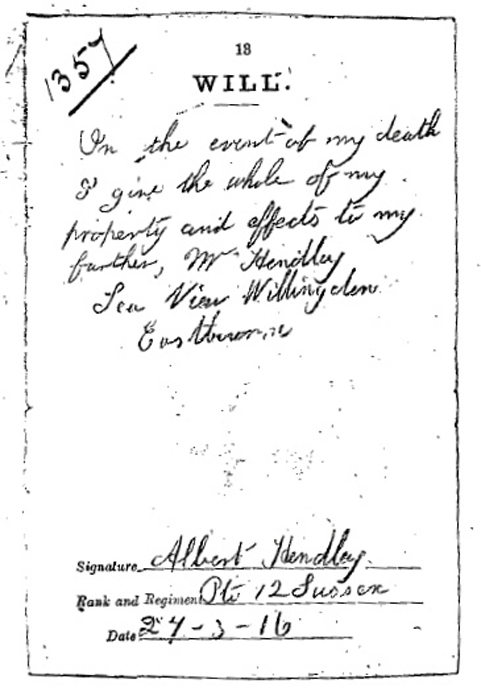 1357
13
WILL.
In the event of my death
I give the whole of my
property and effects to my
farther, Mr Hendley
Sea View Willingden
Eastbourne
Signature Albert Hendley.
Rank and Regiment Pte 12 Sussex
Date 27-3-16